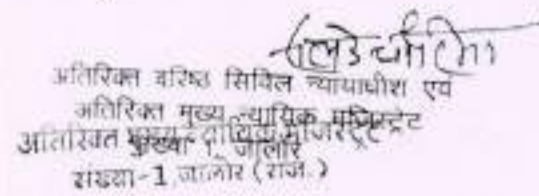 अतिरिक्त वरिष्ठ सिविल न्यायाधीश एवं
अतिरिक्त मुख्य न्यायिक मजिस्ट्रेट
अतिरिक्त मुख्य न्यायिक मजिस्ट्रेट
संख्या-1, जालोर (राज.)